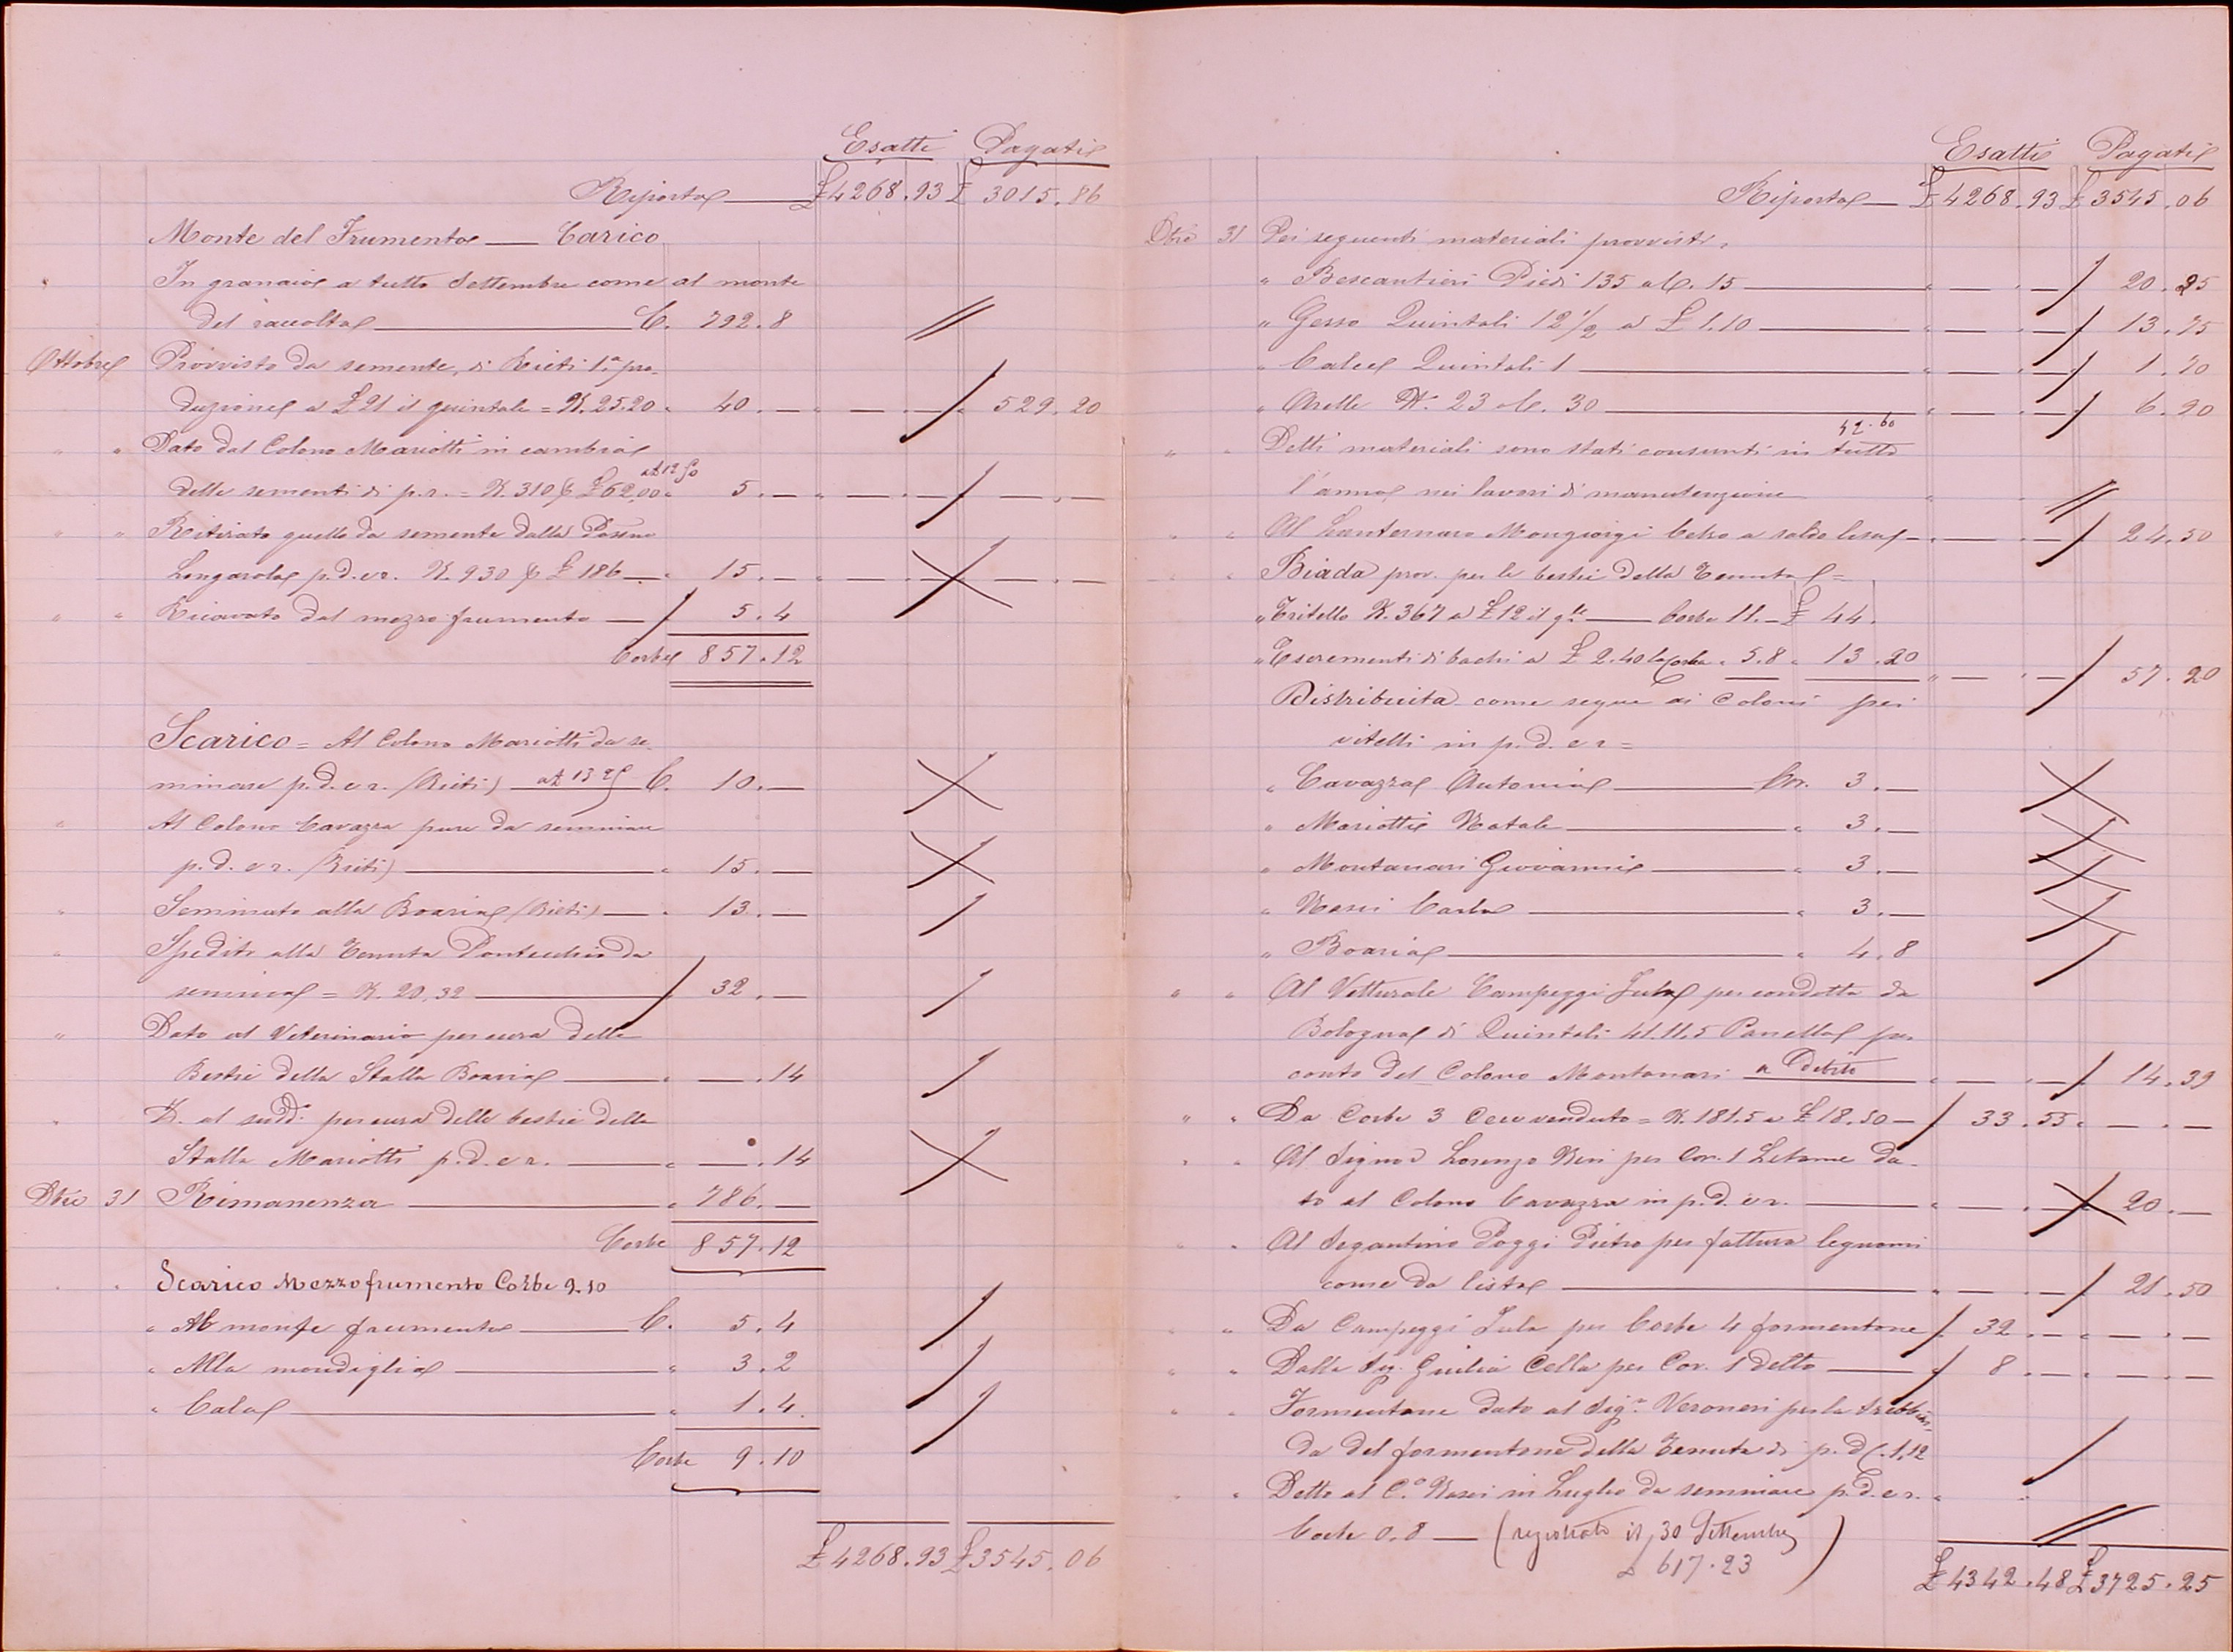 Esatti Pagati
Riporta £ 4268.93 £ 3015.86
Monte del Frumento — Carico
In granaio a tutto Settembre come al monte
del raccolto C. 792.8
Ottobre Provvisto da semente, di Rieti 1ª pro-
duzione a £ 21 il quintale = K. 25.20 " 40.— " — . — " 529.20
" " Dato dal Colono Mariotti in cambio
delle sementi di p.r. = K. 310 £ 62,00 " 5.— " — . — " — . —
" " Ritirato quello da semente dalla Possne
Longarola p.d.e r. K. 930 £ 186 — " 15.— " — . — " — . —
" " Ricavato dal mezzo frumento — 5.4
Corbe 857.12
Scarico = Al Colono Mariotti da se-
minare p.d.e r. (Rieti) C. 10.—
" Al Colono Cavazza pure da seminare
p.d. e r. (Rieti) " 15.—
" Seminato alla Boaria (Rieti) — " 13.—
" Spedito alla Tenuta Pontecchio da
semina = K. 20,32 32.—
" Dato al Veterinario per cura delle
Bestie della Stalla Boaria " — .14
" D. al sudd. per cura delle bestie della
Stalla Mariotti p.d.e r. " — .14
Dbre 31 Rimanenza " 786.—
Corbe 857.12
" " Scarico Mezzo frumento Corbe 9.10
" Al monte frumento C. 5.4
" Alla mondiglia " 3.2
" Calo " 1.4
Corbe 9.10
£ 4268.93 £ 3545.06
Esatti Pagati
Riporta £ 4268.93 £ 3545.06
Dbre 31 Pei seguenti materiali provvisti.
" Bescantieri Piedi 135 a C. 15 " — . — 20.25
" Gesso Quintali 12 1/2 a £ 1.10 " — . — 13.75
" Calce Quintali 1 " — . — 1.70
" Arelle N. 23 a C. 30 " — . — 6.90
42.60
" " Detti materiali sono stati consunti in tutto
l'anno nei lavori di manutenzione
" " Al Lanternaro Mongiorgi Celso a saldo lista " — . — 24.50
" " Biada prov. per le bestie della Tenuta =
" Tritello K. 367 a £ 12 il q.le — Corbe 11.— £ 44.
" Escrementi di bachi a £ 2.40 la Corba " 5.8 " 13.20 " — . — 57.20
Distribuita come segue ai Coloni pei
vitelli in p.d. e r =
" Cavazza Antonio Cor. 3.—
" Mariotti Natale " 3.—
" Montanari Giovanni " 3.—
" Nasci Carlo " 3.—
" Boaria " 4.8
" " Al Vetturale Campeggi Giulio per condotta da
Bologna di Quintali 41.11,5 Panella per
conto del Colono Montanari a Debito " — . — 14.39
" " Da Corbe 3 Cece venduto = K. 181.5 a £ 18.50 — 33.55 " — . —
" " Al Signor Lorenzo Neri per Cor. 1 Letame da-
to al Colono Cavazza in p.d. e r. " — . — 20.—
" " Al Segantino Poggi Pietro per fattura legnami
come da lista " — . — 21.50
" " Da Campeggi Giulio per Corbe 4 formentone 32.— " — . —
" " Dalla Sig. Giulia Cella per Cor. 1 detto — 8.— " — . —
" " Formentone dato al Sig.r Veronesi per la trebbia-
da del formentone della Tenuta di p.d C. 1,12
" " Detto al C.o Nasci in Luglio da seminare p.d.e r. "
Corbe 0.8 — (registrato il 30 Settembre)
£ 617.23
£ 4342.48 £ 3725.25